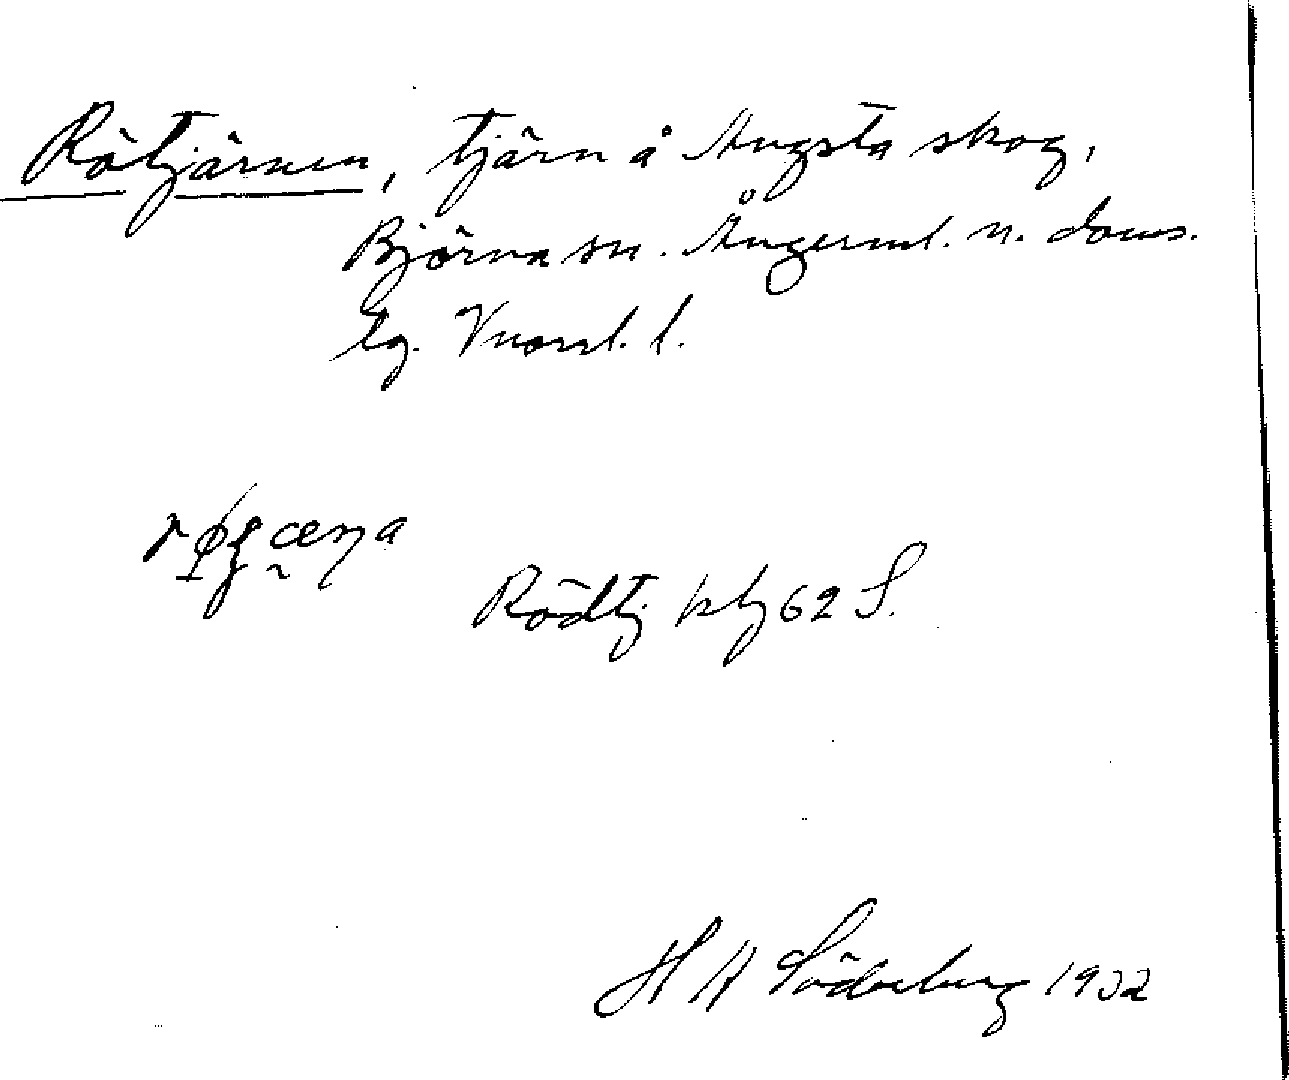 Rötjärnen, tjärn å Ängsta skog,
Björna sn. Ångerml. n. doms.
lg. Vnorrl. l.
Rödtj kbl 62 S.
H A Söderberg 1932